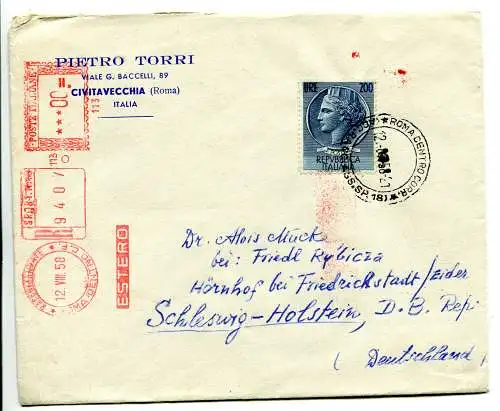 PIETRO TORRI
VIALE G. BACCELLI, 89
CIVITAVECCHIA (Roma)
ITALIA
POSTE ITALIANE
***00
113
9407
12 VIII 58
ESTERO
LIRE 200
REPVBBLICA
ITALIANA
ROMA CENTRO CORR.
Dr. Alois Mücke
bei: Friedl Rybicza
Hörnhof bei Friedrichstadt/Eider
Schleswig-Holstein, D. B. Rep.
(Deutschland)